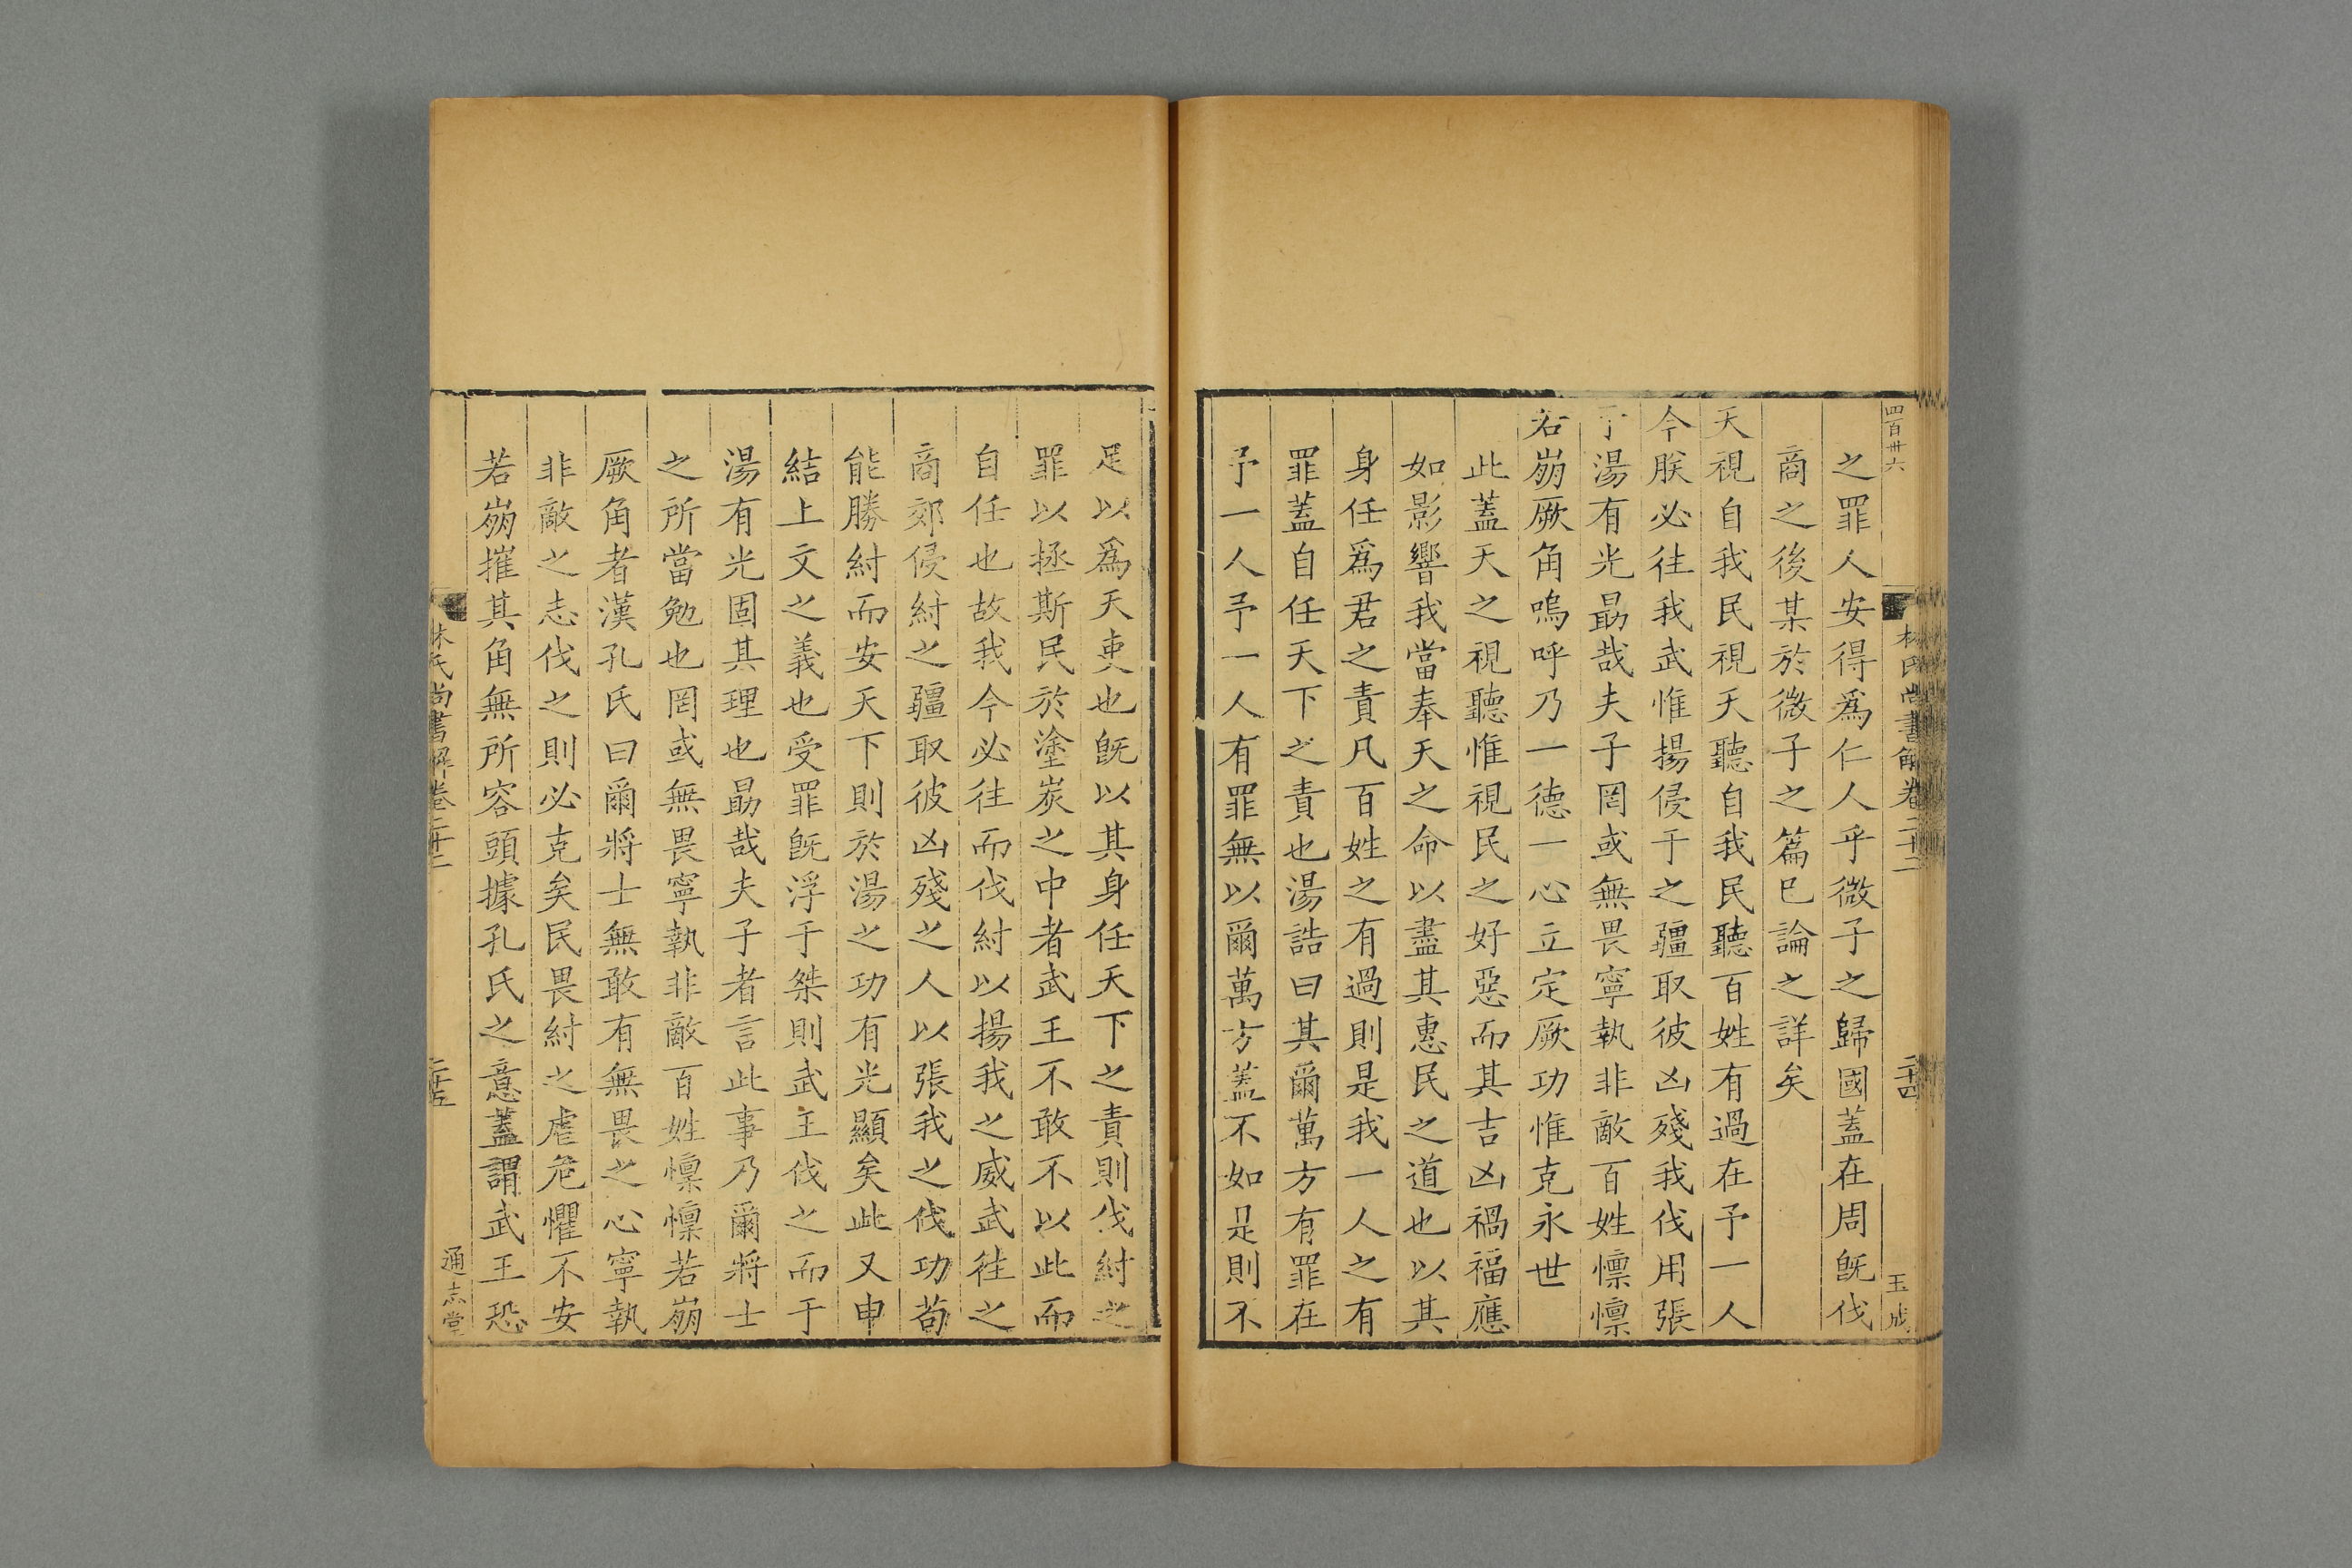 四百卅六
林氏尚書解卷二十二
二十四
玉成
之罪人安得爲仁人乎微子之歸國蓋在周旣伐
商之後某於微子之篇巳論之詳矣
天視自我民視天聽自我民聽百姓有過在予一人
今朕必往我武惟揚侵于之疆取彼凶殘我伐用張
于湯有光勗哉夫子罔或無畏寧執非敵百姓懍懍
若崩厥角嗚呼乃一德一心立定厥功惟克永世
此蓋天之視聽惟視民之好惡而其吉凶禍福應
如影響我當奉天之命以盡其惠民之道也以其
身任爲君之責凡百姓之有過則是我一人之有
罪蓋自任天下之責也湯誥曰其爾萬方有罪在
予一人予一人有罪無以爾萬方蓋不如是則不
足以爲天吏也旣以其身任天下之責則伐紂之
罪以拯斯民於塗炭之中者武王不敢不以此而
自任也故我今必往而伐紂以揚我之威武徃之
商郊侵紂之疆取彼凶殘之人以張我之伐功苟
能勝紂而安天下則於湯之功有光顯矣此又申
結上文之義也受罪旣浮于桀則武王伐之而于
湯有光固其理也勗哉夫子者言此事乃爾將士
之所當勉也罔或無畏寧執非敵百姓懍懍若崩
厥角者漢孔氏曰爾將士無敢有無畏之心寧執
非敵之志伐之則必克矣民畏紂之虐危懼不安
若崩摧其角無所容頭據孔氏之意蓋謂武王恐
林氏尚書解卷二十二
二十五
通志堂